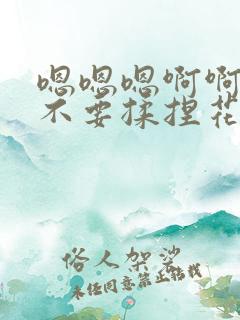 嗯嗯嗯啊啊
不要揉捏花
俗人架娑
未经同意禁止转载